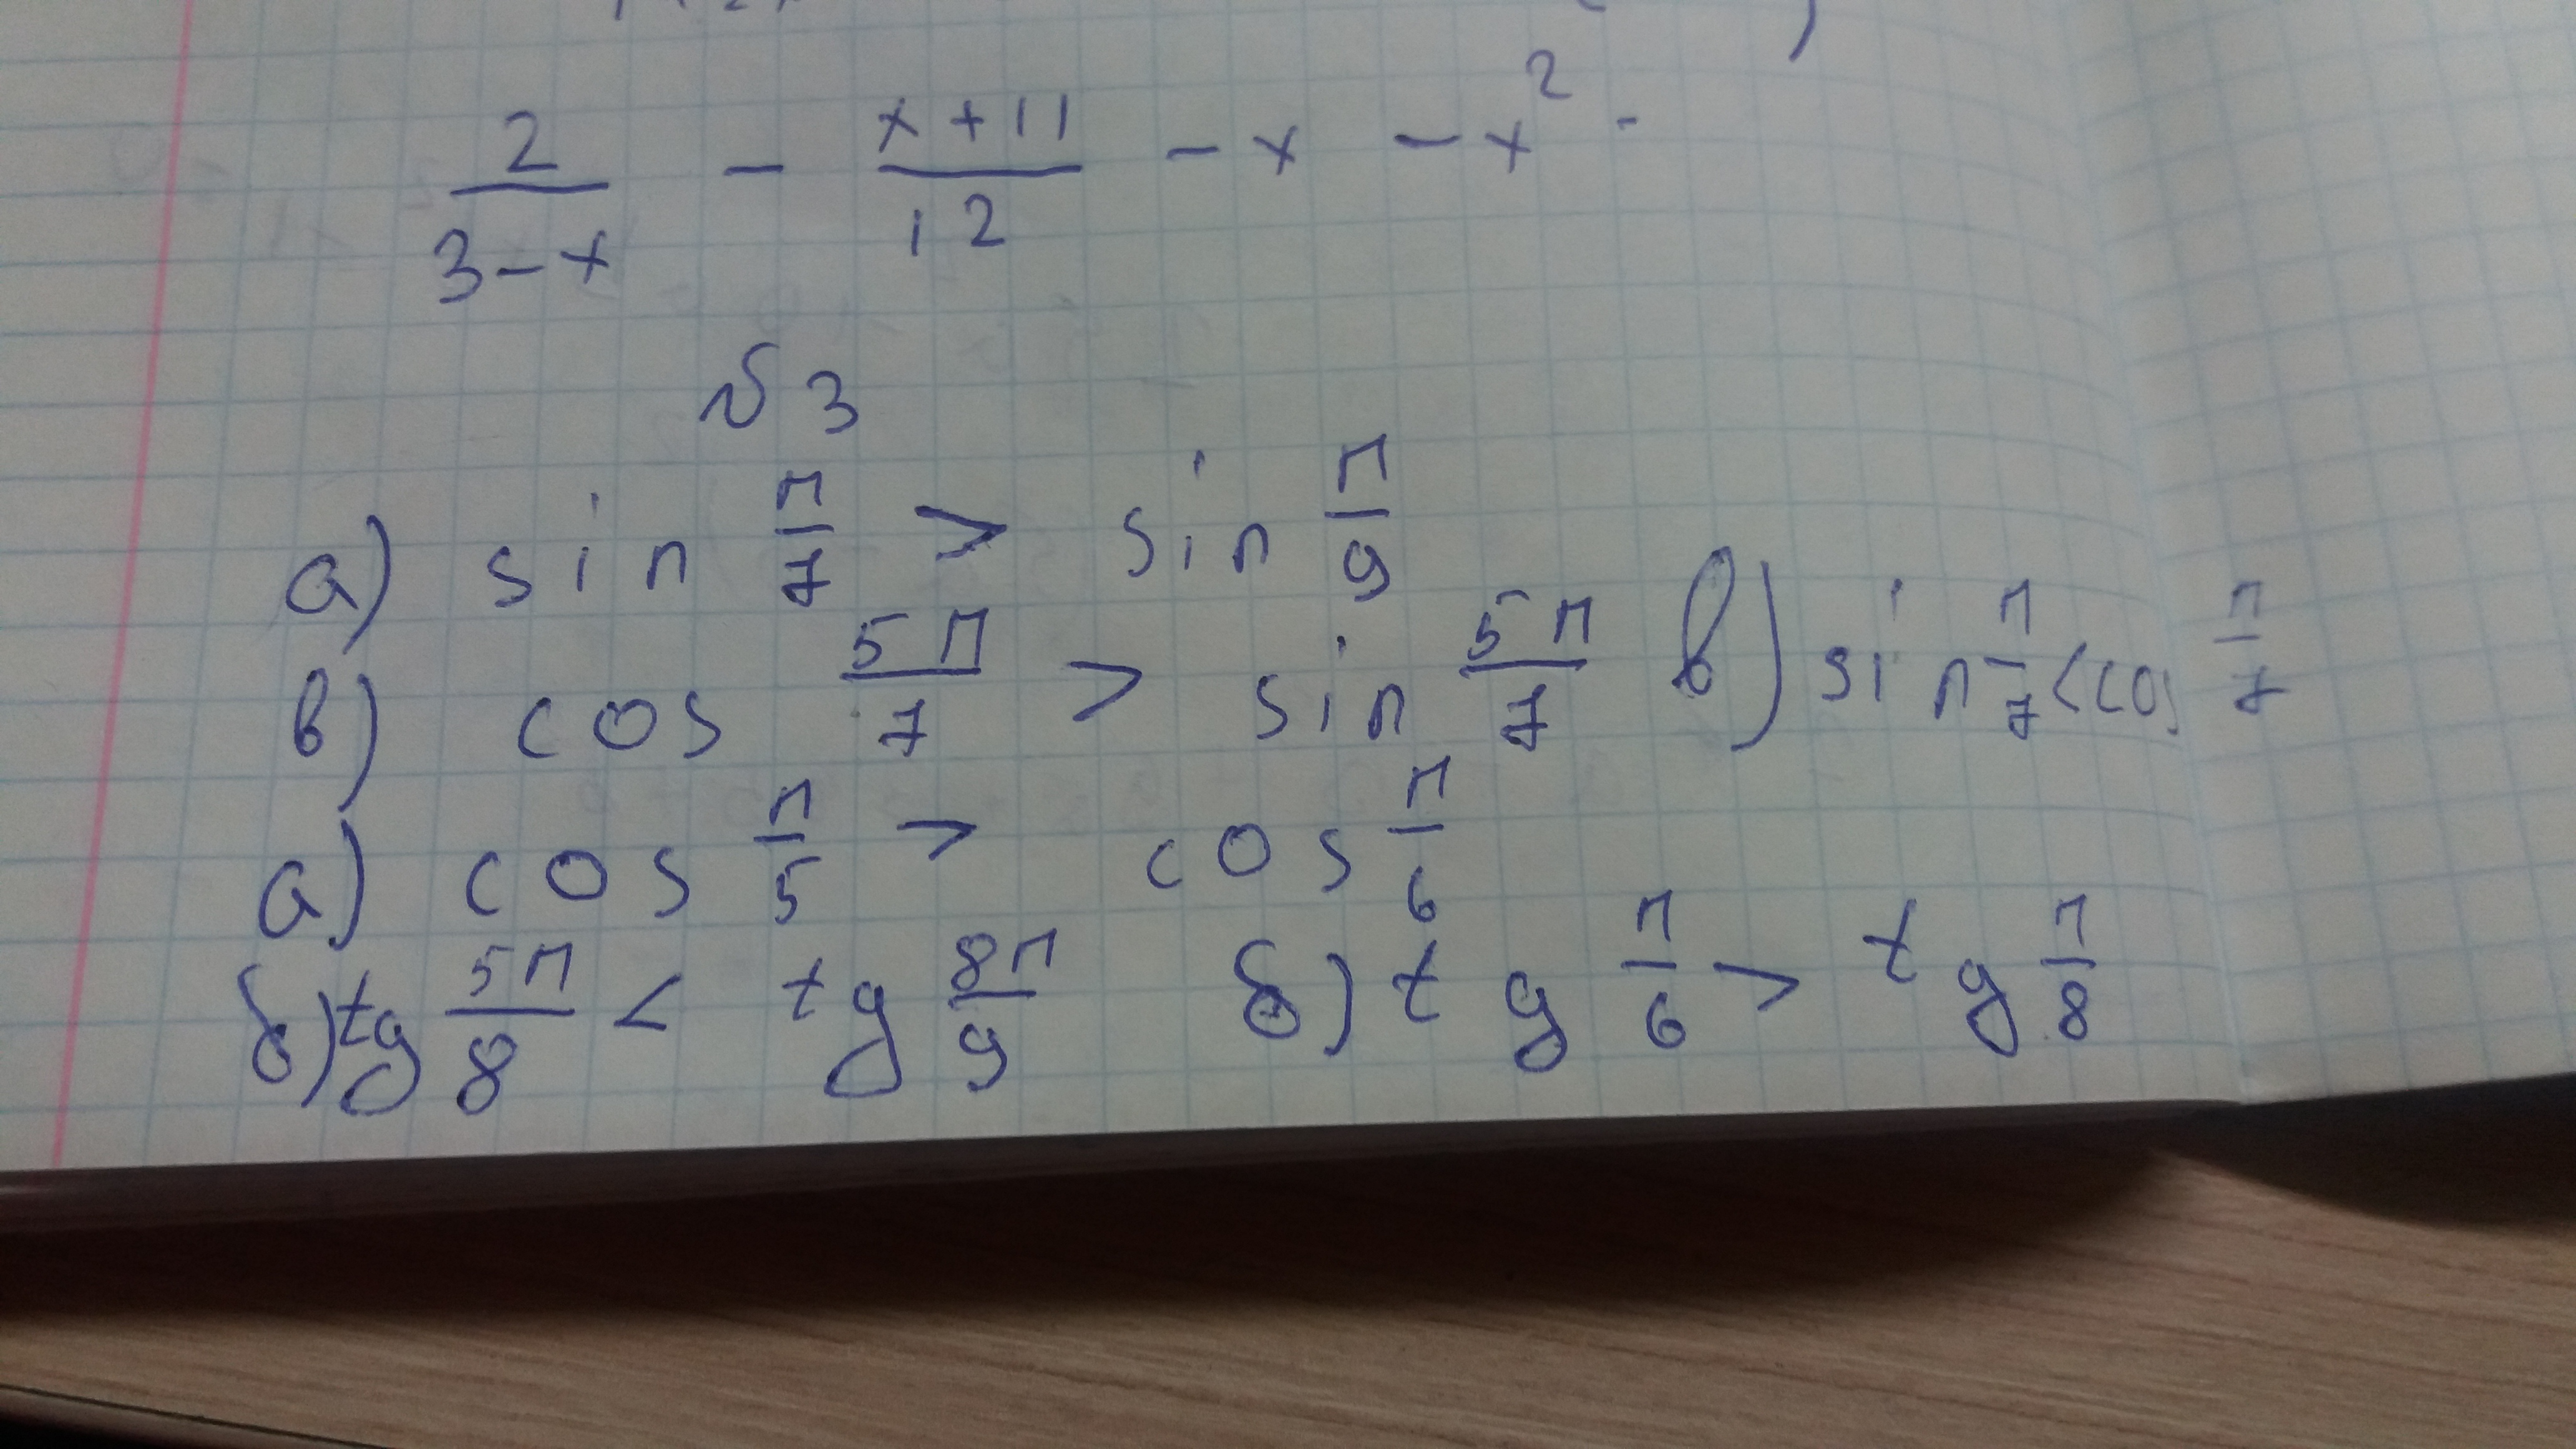 2/(3-x) - (x+11)/12 - x - x² -
№3
а) sin π/7 > sin π/9
в) cos 5π/7 > sin 5π/7 в) sin π/7 < cos π/7
а) cos π/5 > cos π/6
б) tg 5π/8 < tg 8π/9 б) tg π/6 > tg π/8